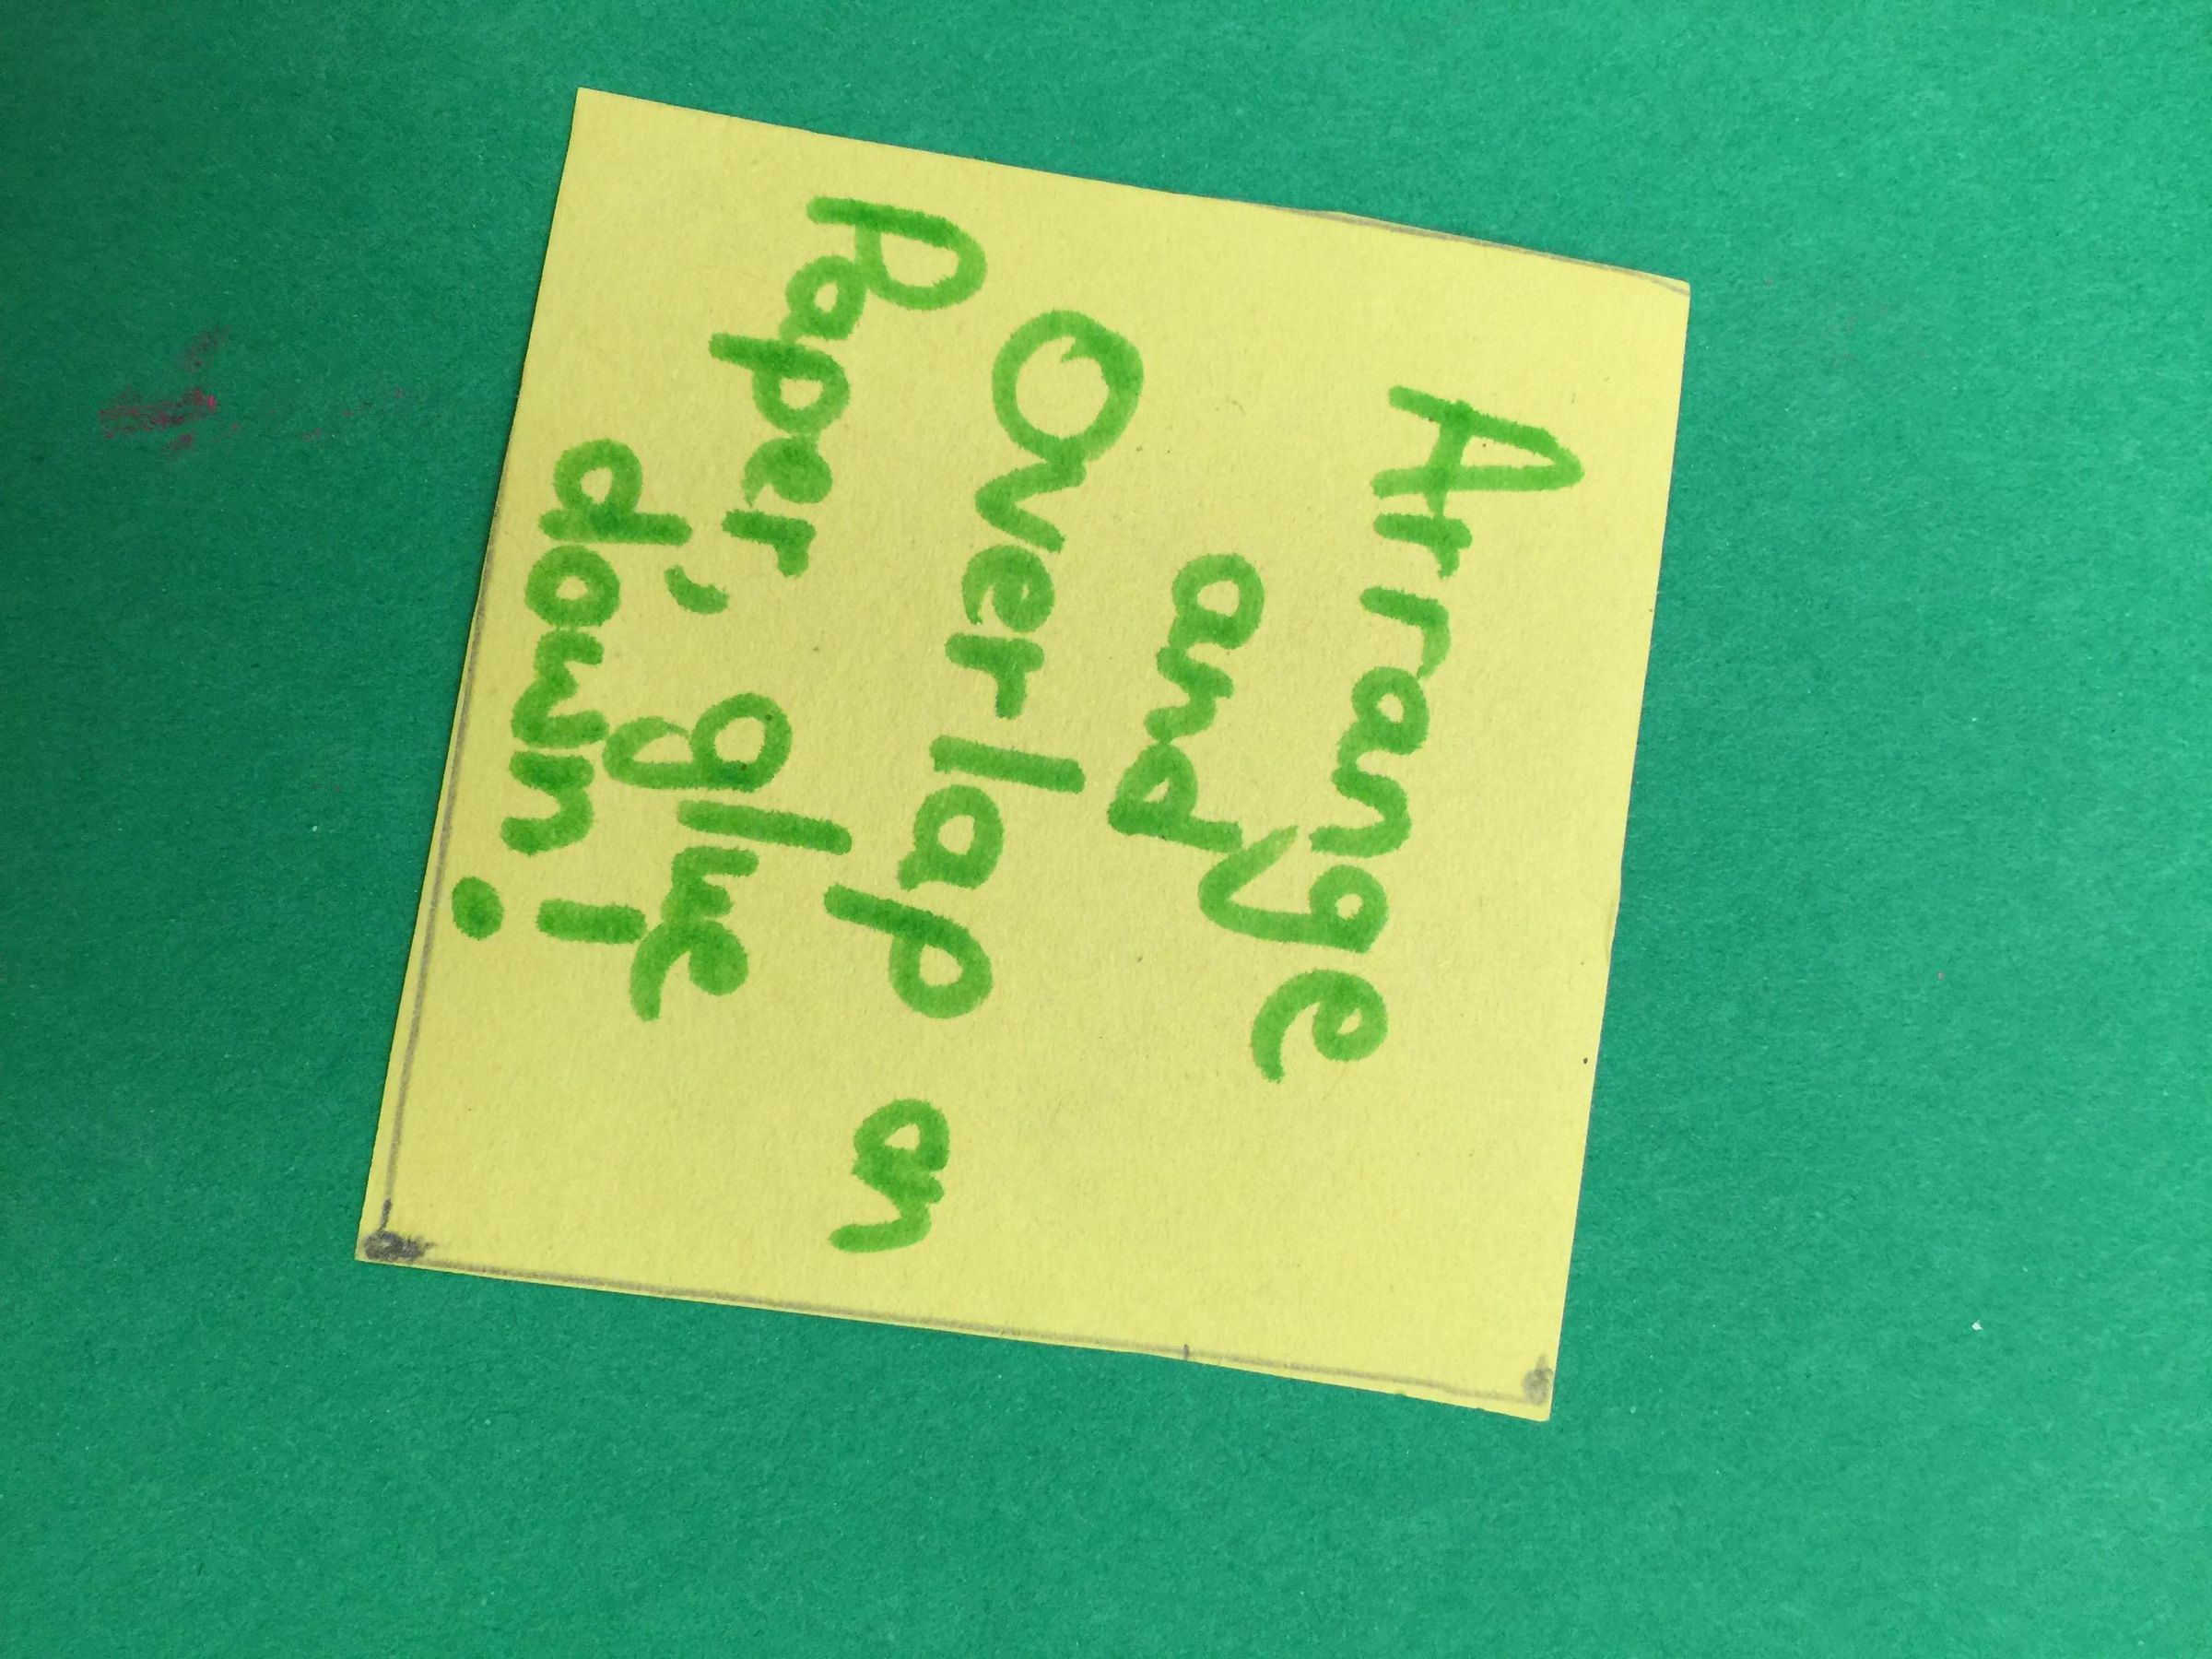 Arrange
and
Overlap on
Paper, glue
down!